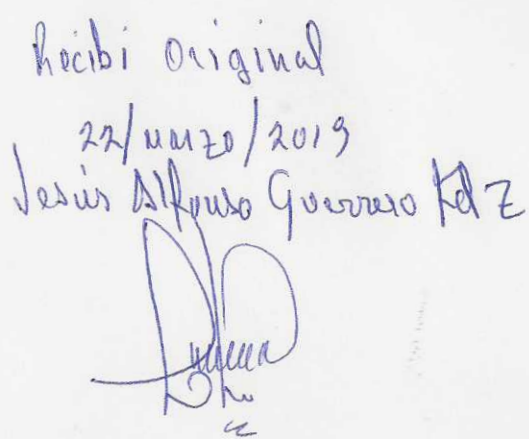 Recibi Original
22/marzo/2019
Jesús Alfonso Guerrero